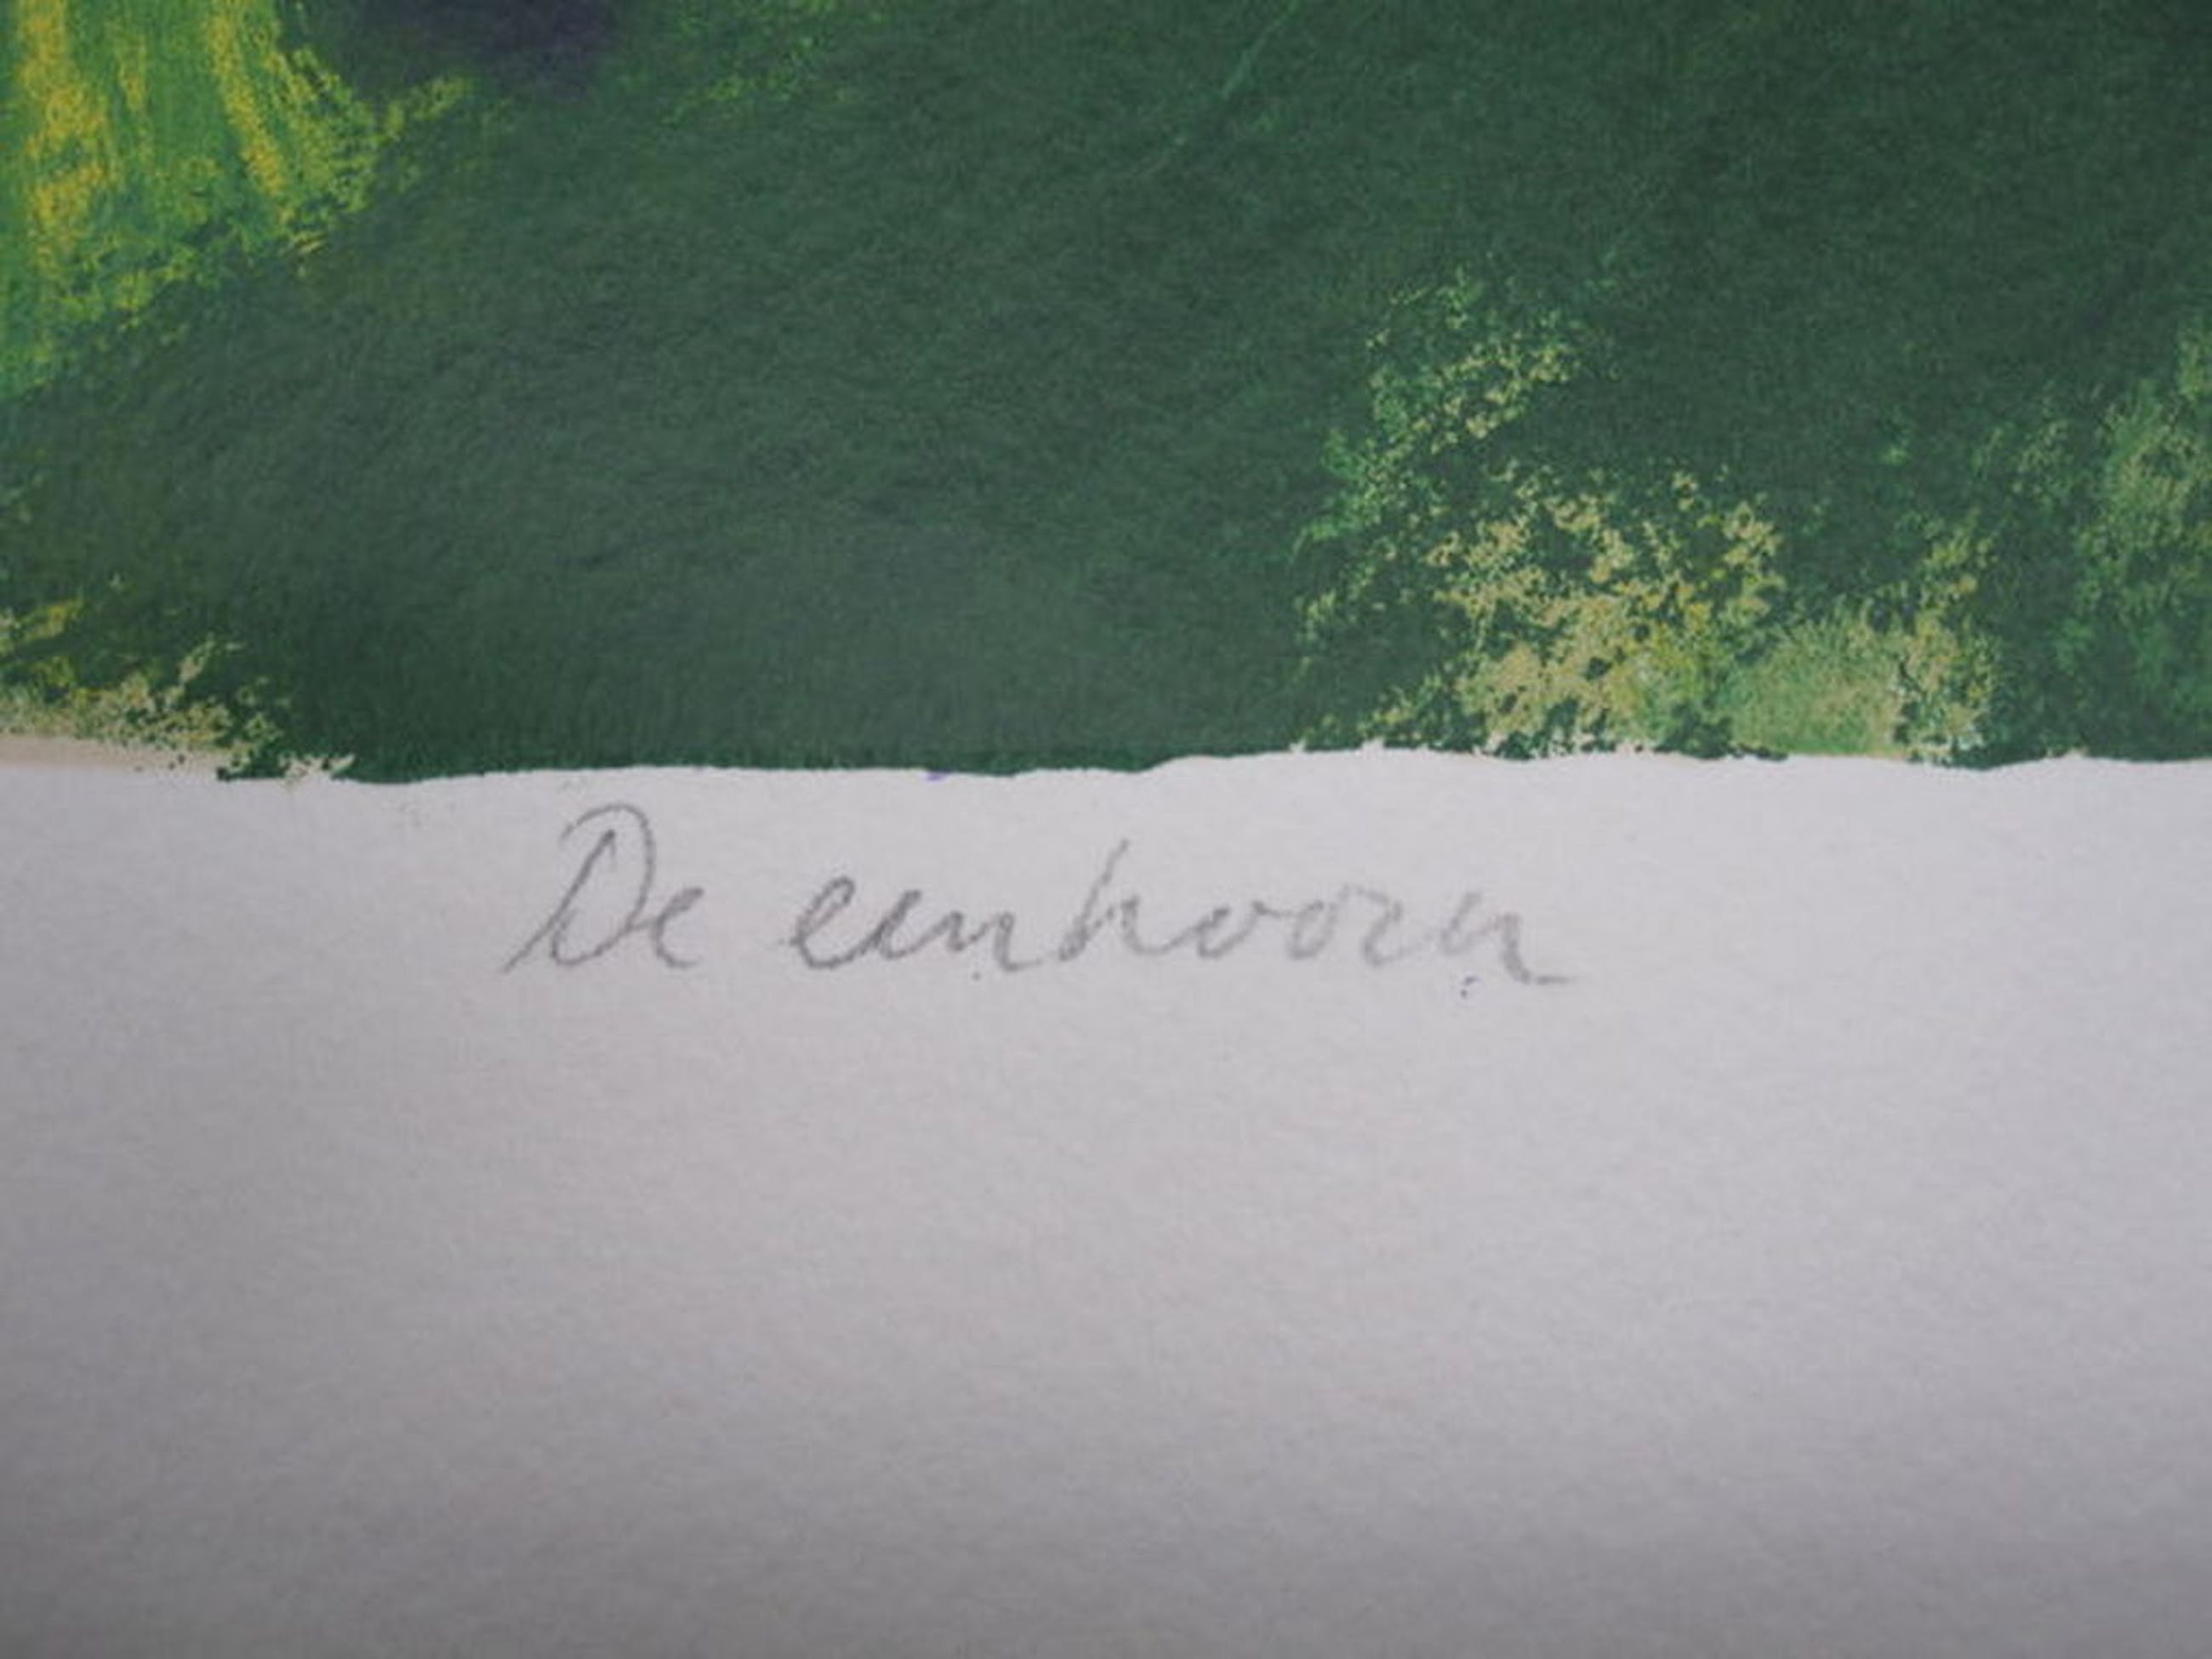 De eenhoorn